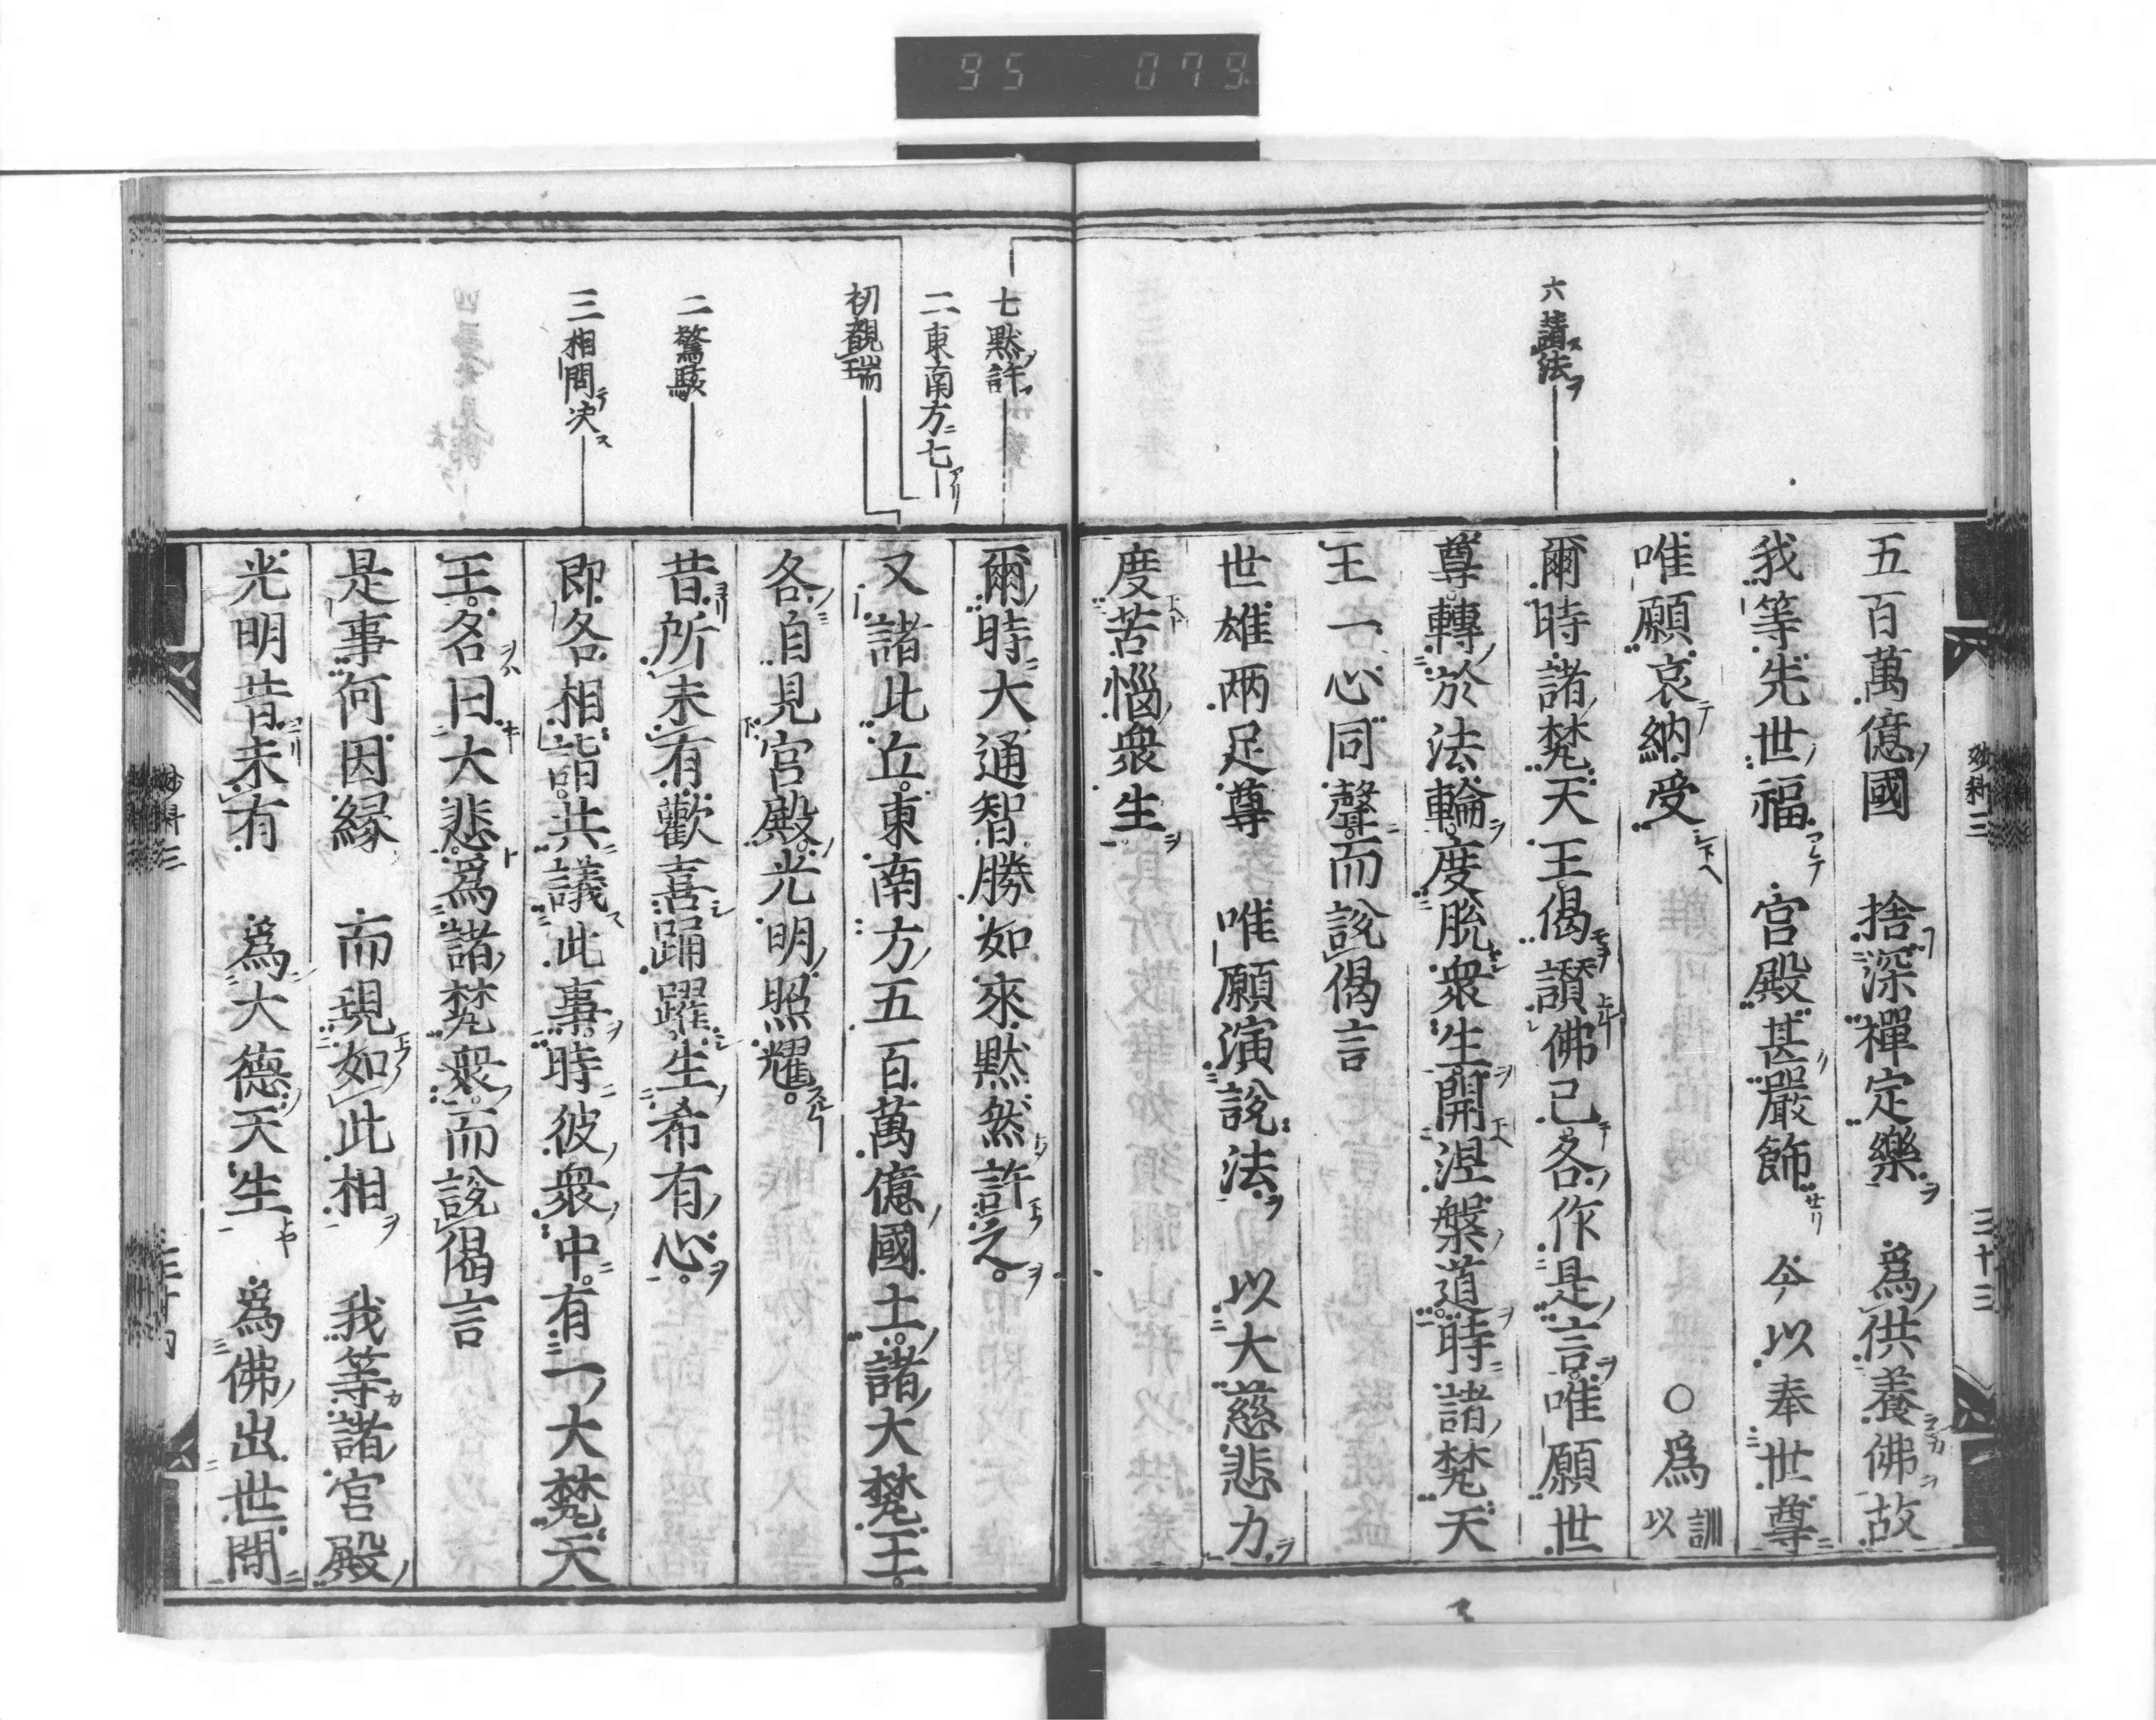 95 079
六請法
五百萬億國 捨深禪定樂 爲供養佛故
我等先世福 宮殿甚嚴飾 今以奉世尊
唯願哀納受 ○爲訓以
爾時諸梵天王偈讃佛已各作是言唯願世
尊轉於法輪度脫衆生開涅槃道時諸梵天
王一心同聲而說偈言
世雄两足尊 唯願演說法 以大慈悲力
度苦惱衆生
妙科三 三十三
七默許
二東南方七
初覩瑞
二驚駭
三相問决
爾時大通智勝如來默然許之
又諸比丘東南方五百萬億國土諸大梵王
各自見宮殿光明照耀
昔所未有歡喜踊躍生希有心
即各相詣共議此事時彼衆中有一大梵天
王名曰大悲爲諸梵衆而說偈言
是事何因縁 而現如此相 我等諸宮殿
光明昔未有 爲大德天生 爲佛出世間
妙科三